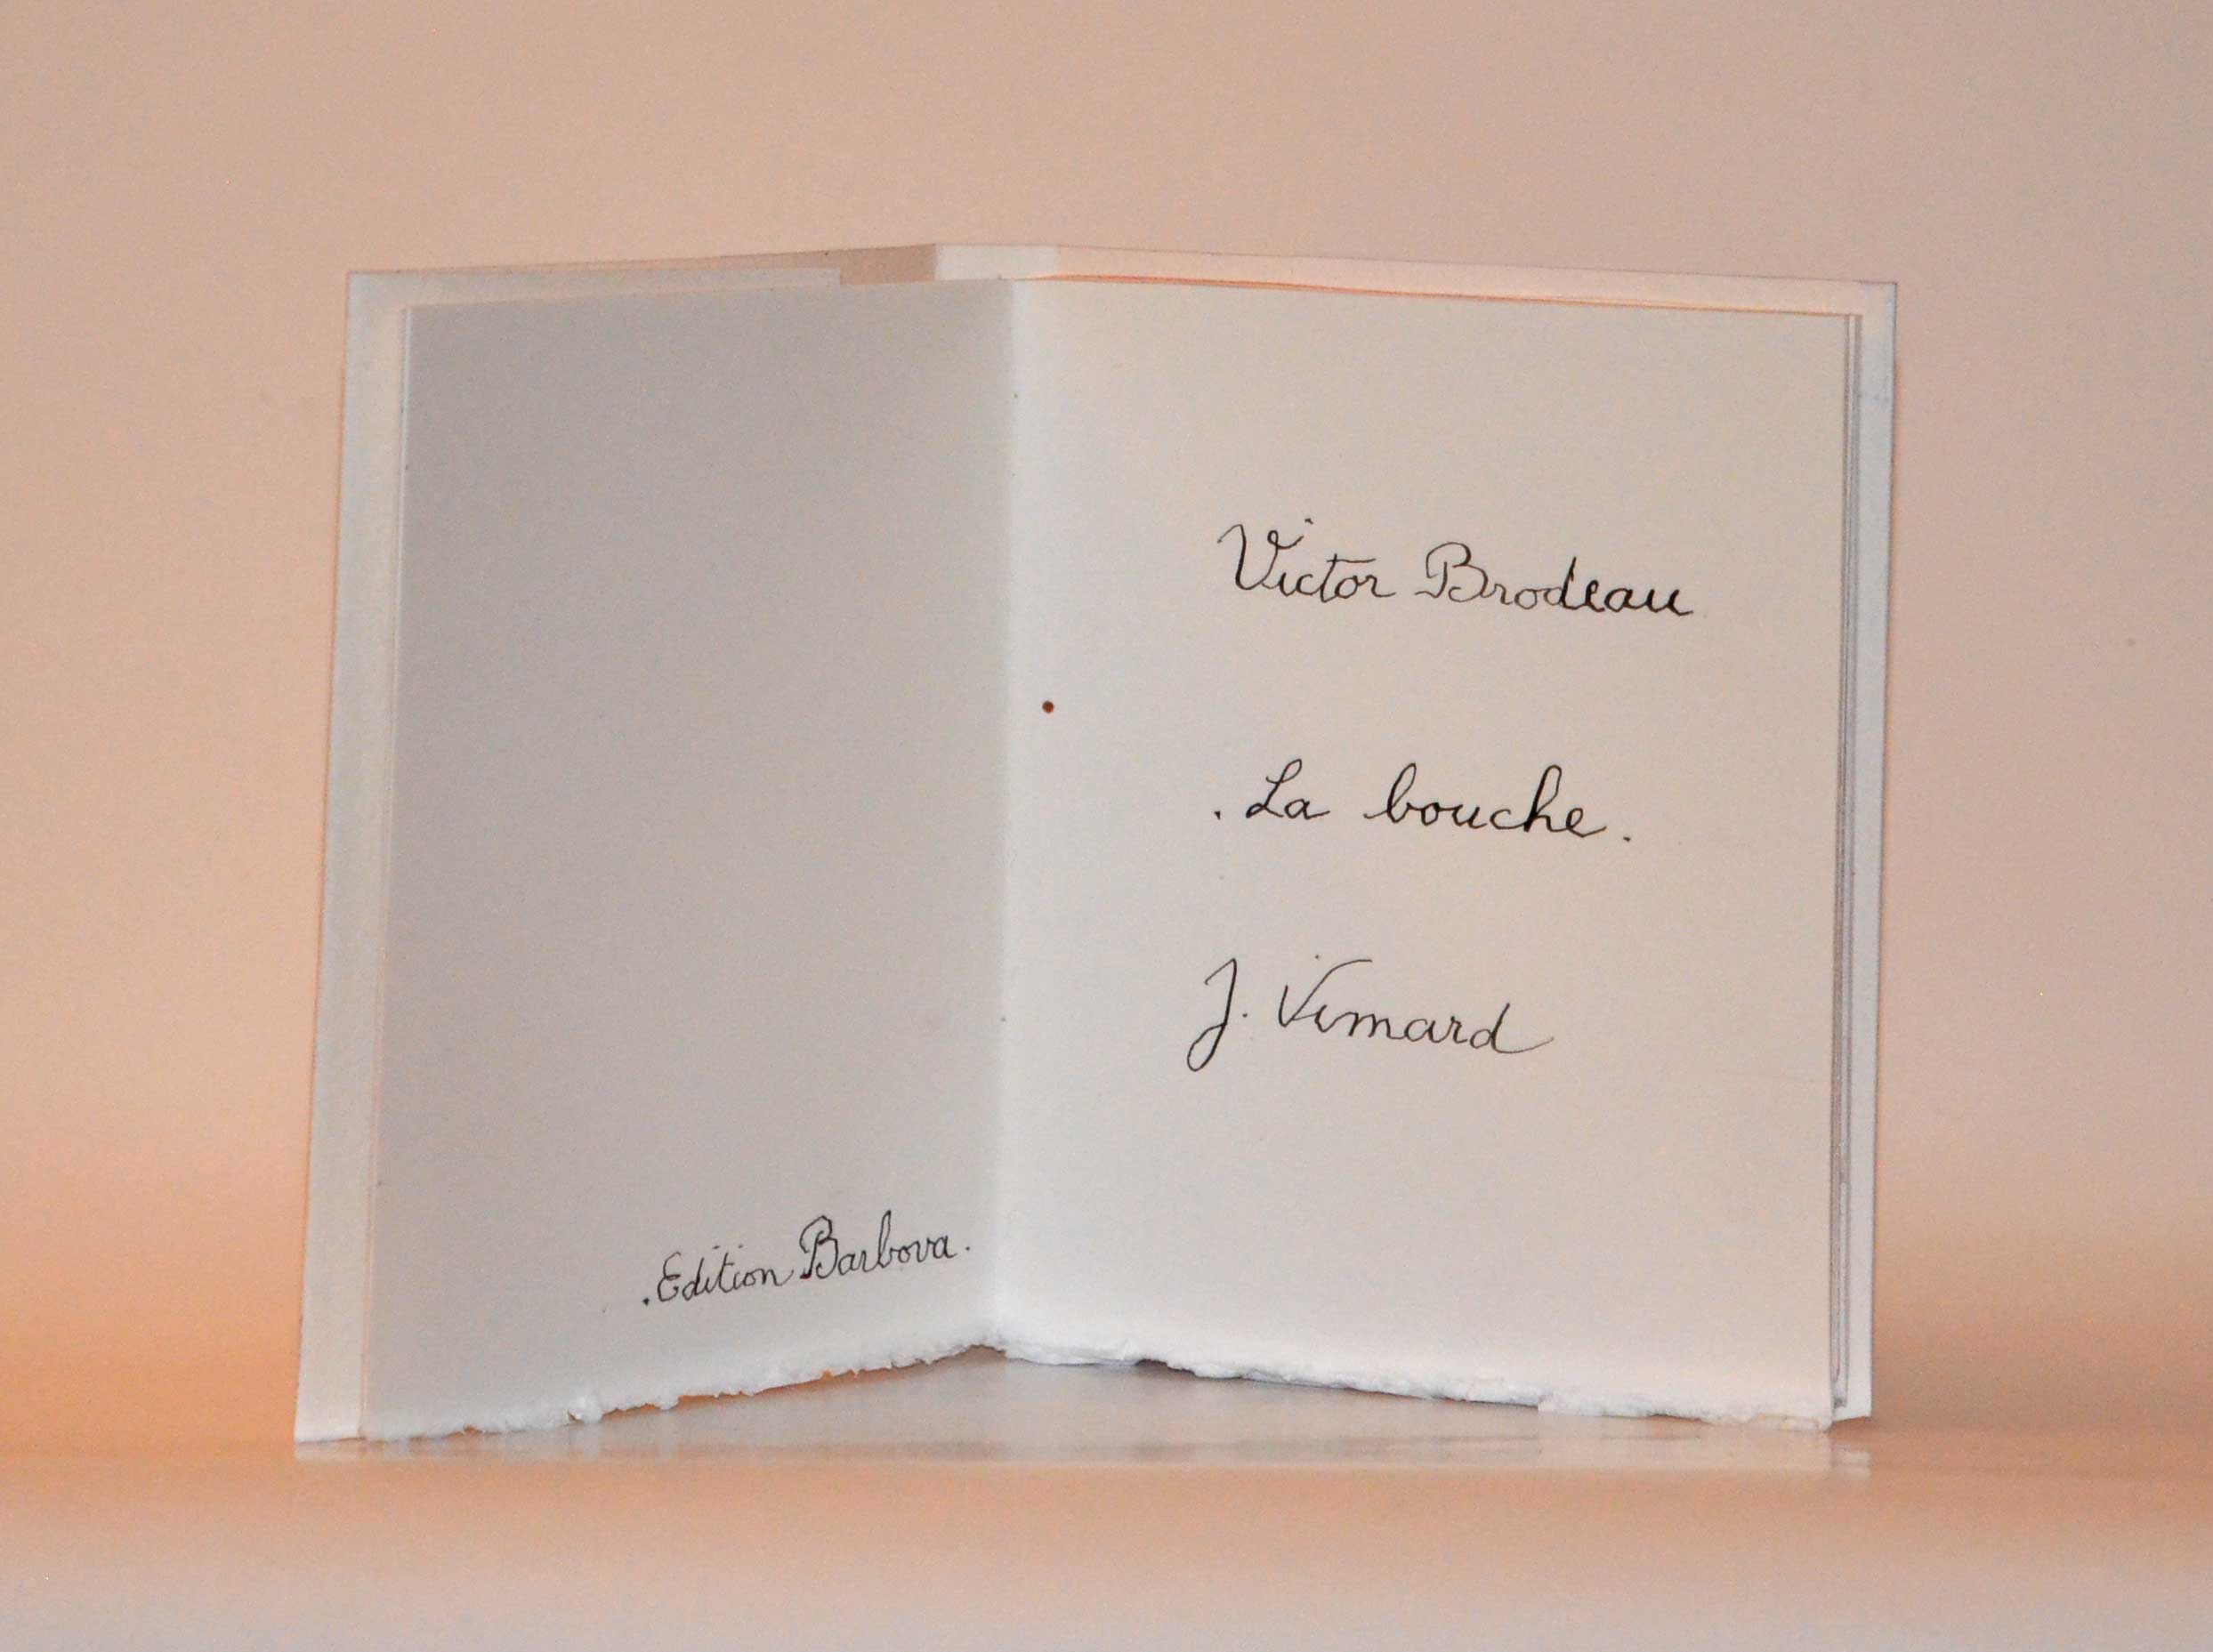 .Edition Barbova.
Victor Brodeau
. La bouche .
J. Vimard